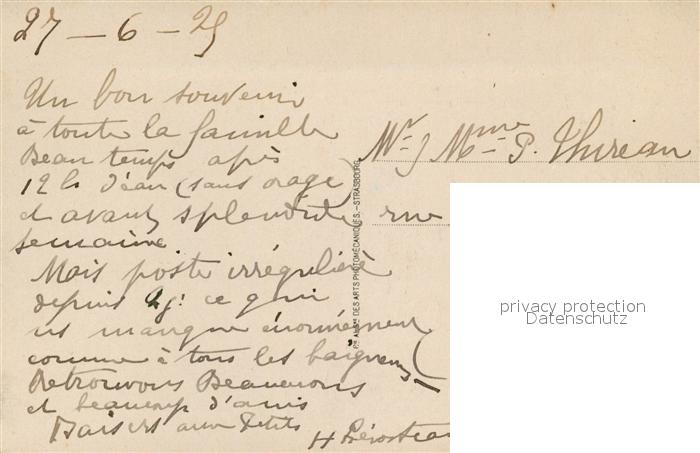 27 - 6 - 25
Un bon souvenir
à toute la famille
Beau temps après
12 h d'eau (sans orage)
et avant splendide
semaine
Mais poste irrégulière
depuis ce qui
ns manque énormément
comme à tous les baigneurs
Retrouvons
et beaucoup d'amis
Baisers aux Petits
H
Mr & Mme P. Thureau
rue
DES ARTS PHOTOMÉCANIQUES. - STRASBOURG
privacy protection
Datenschutz